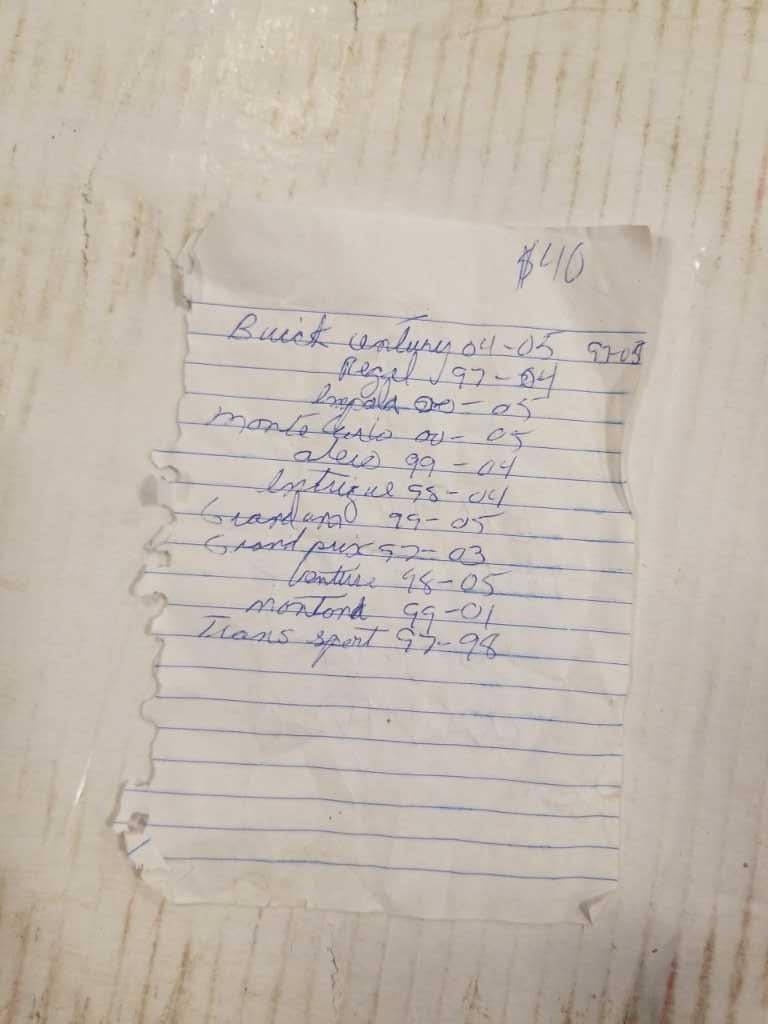 $40
Buick century 04-05 97-03
Regal 97-04
Impala 00-05
Monte Carlo 00-05
alero 99-04
Intrigue 98-04
Grandam 99-05
Grand prix 97-03
Venture 98-05
montana 99-01
Trans sport 97-98